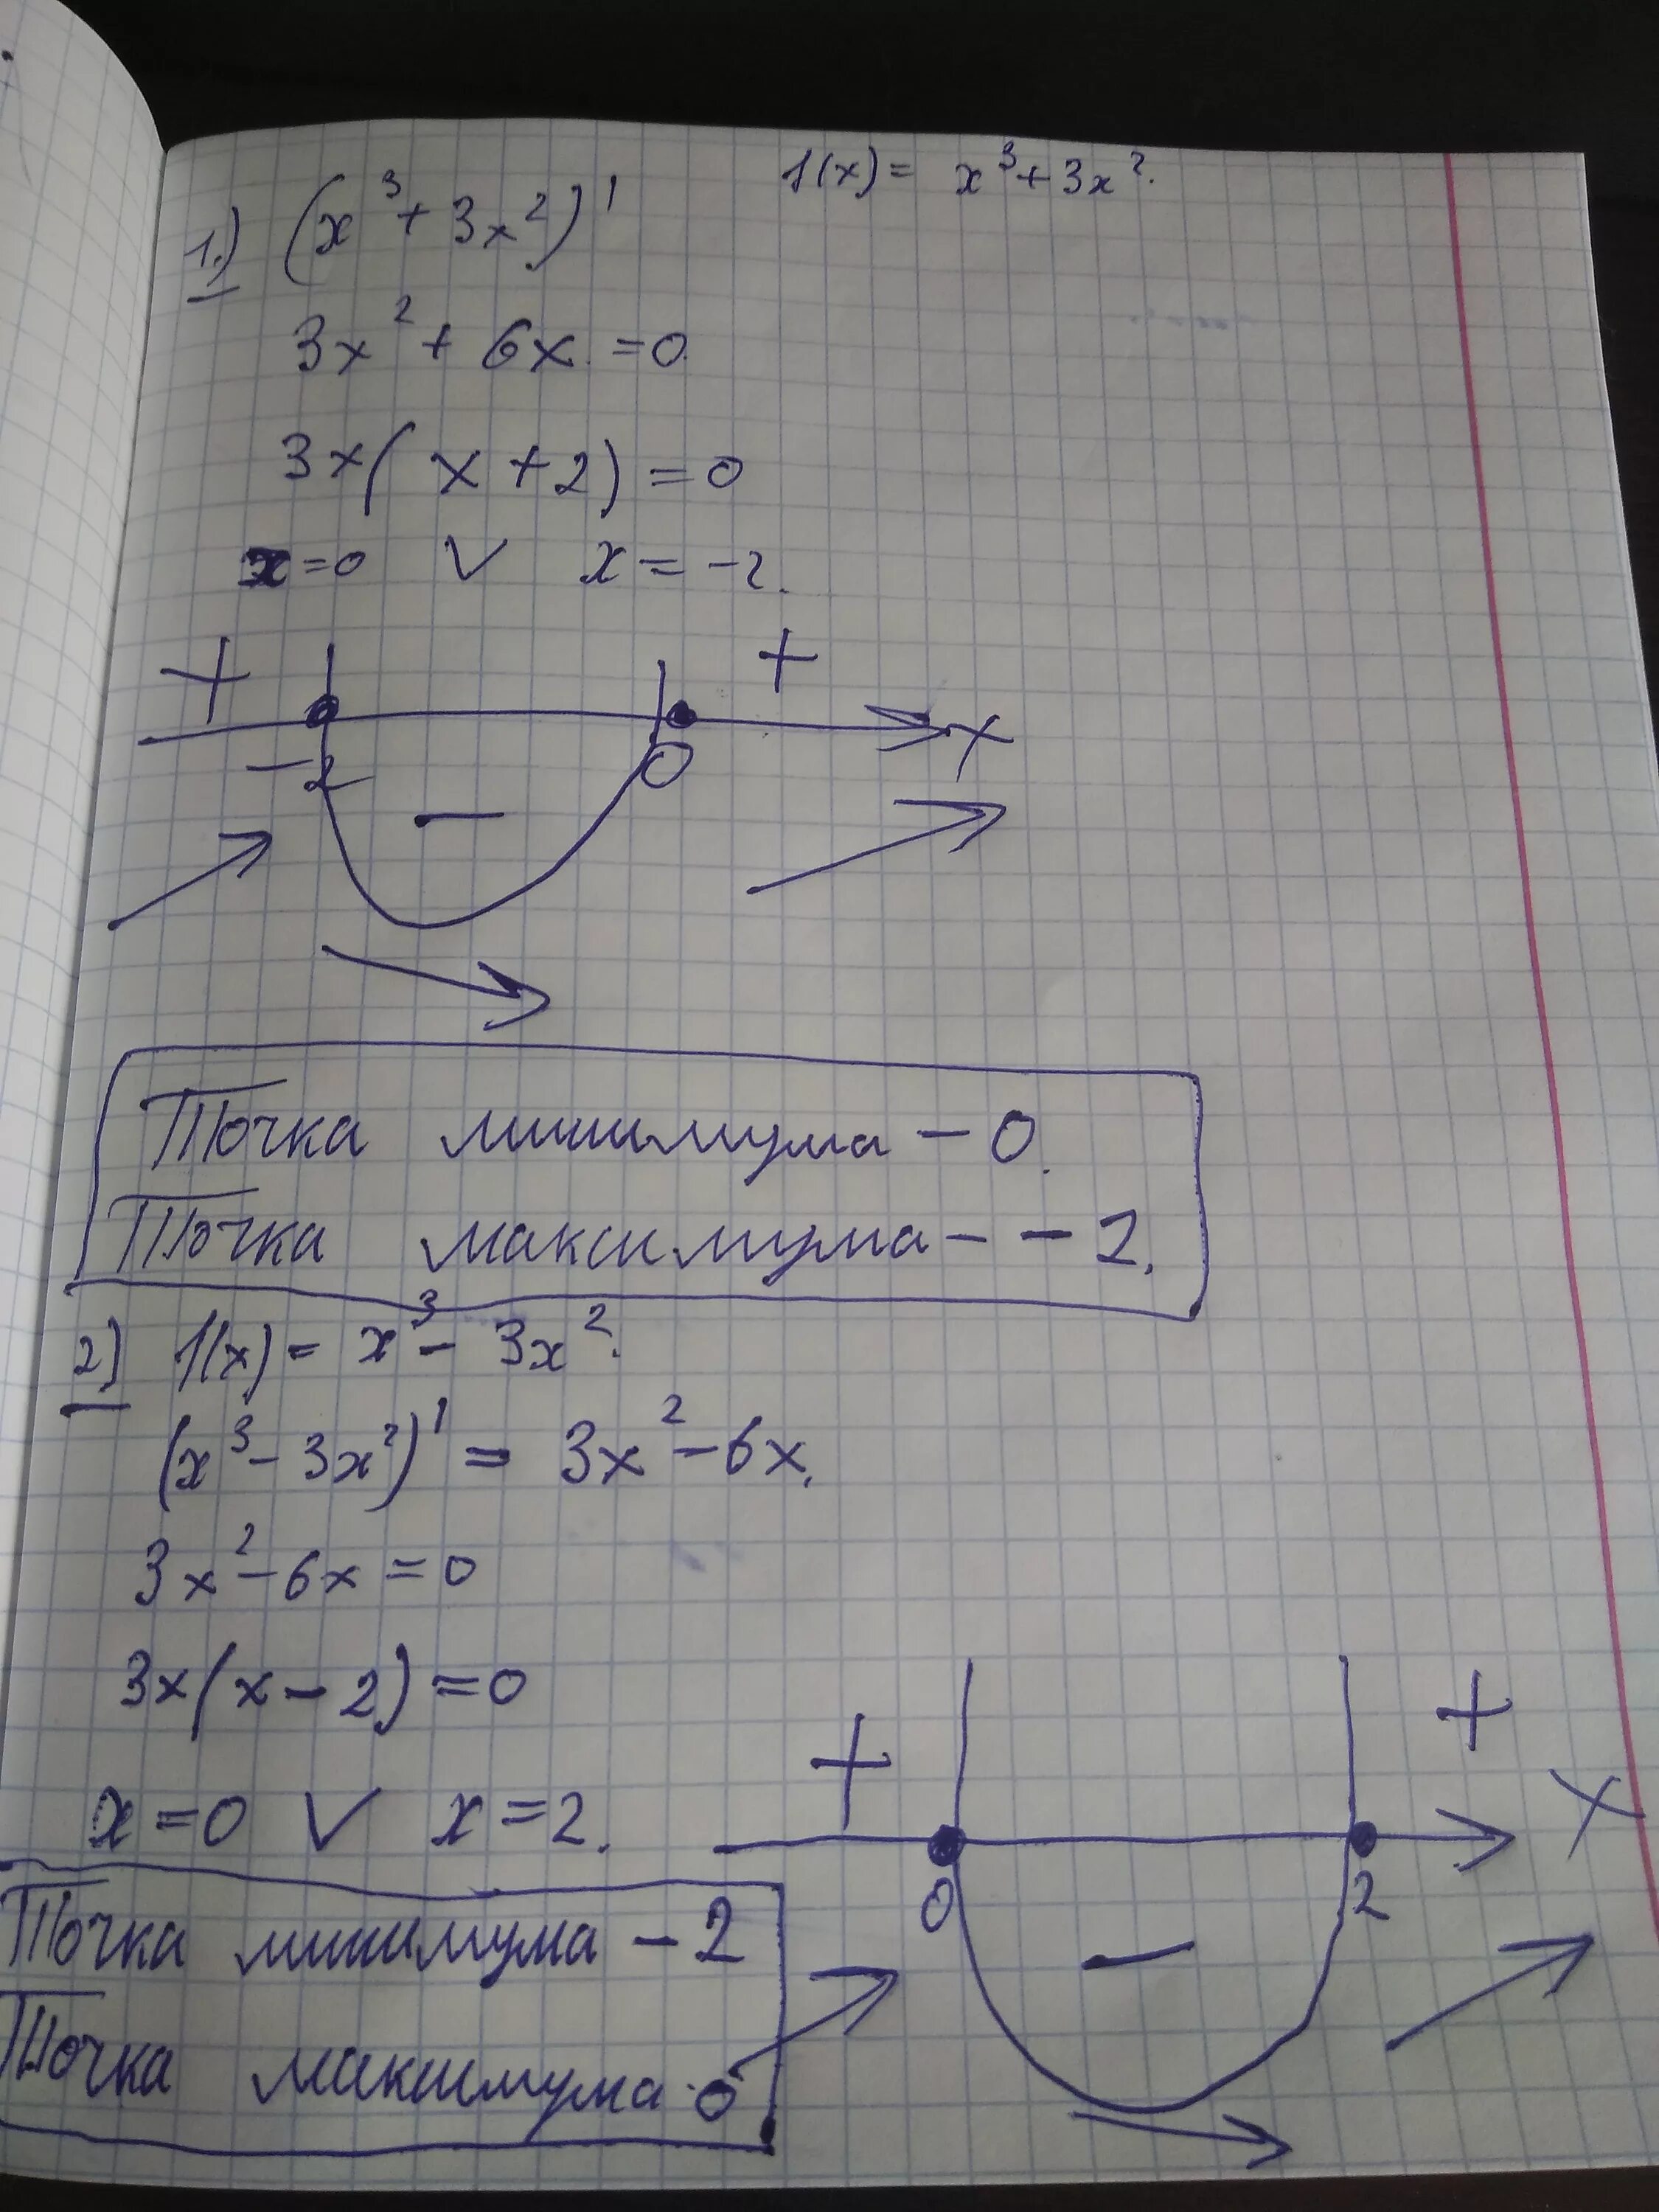 f(x) = x³ + 3x².
1.) (x³ + 3x²)'
3x² + 6x = 0.
3x(x + 2) = 0
x = 0 ∨ x = -2.
+ +
-2 0 x
-
Точка минимума - 0.
Точка максимума - - 2.
2) f(x) = x³ - 3x².
(x³ - 3x²)' = 3x² - 6x.
3x² - 6x = 0
3x(x - 2) = 0
x = 0 ∨ x = 2.
+ +
0 2 x
-
Точка минимума - 2
Точка максимума - 0